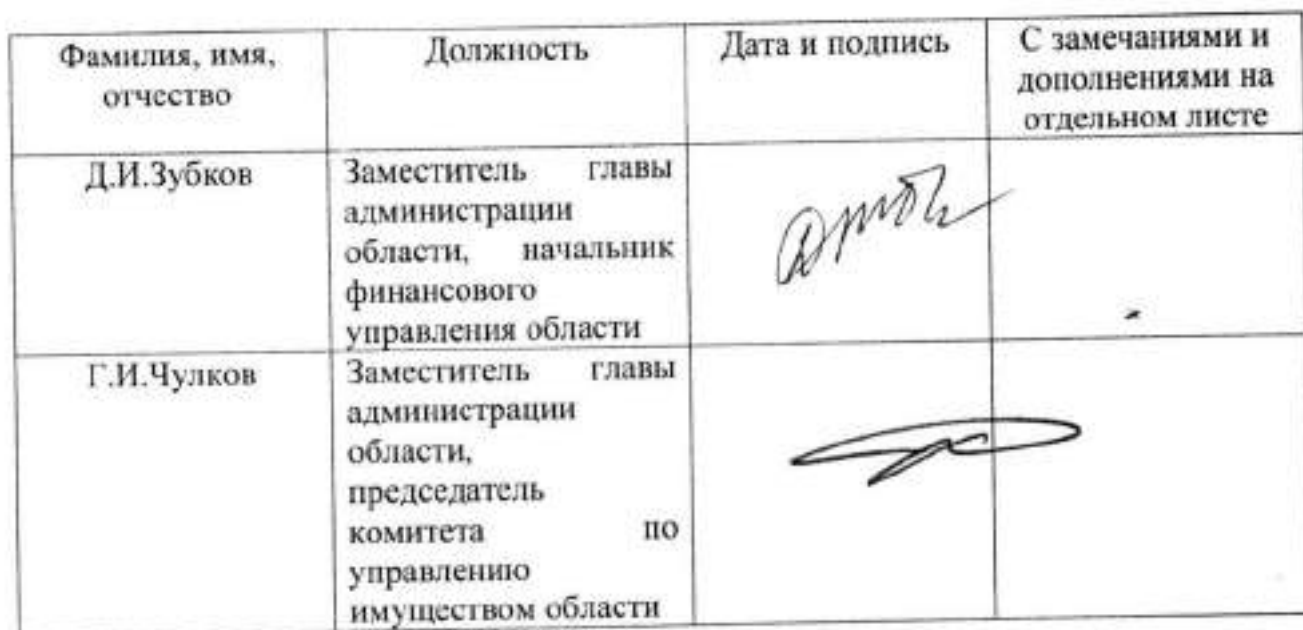 Фамилия, имя,
отчество
Должность
Дата и подпись
С замечаниями и
дополнениями на
отдельном листе
Д.И.Зубков
Заместитель главы
администрации
области, начальник
финансового
управления области
Г.И.Чулков
Заместитель главы
администрации
области,
председатель
комитета по
управлению
имуществом области